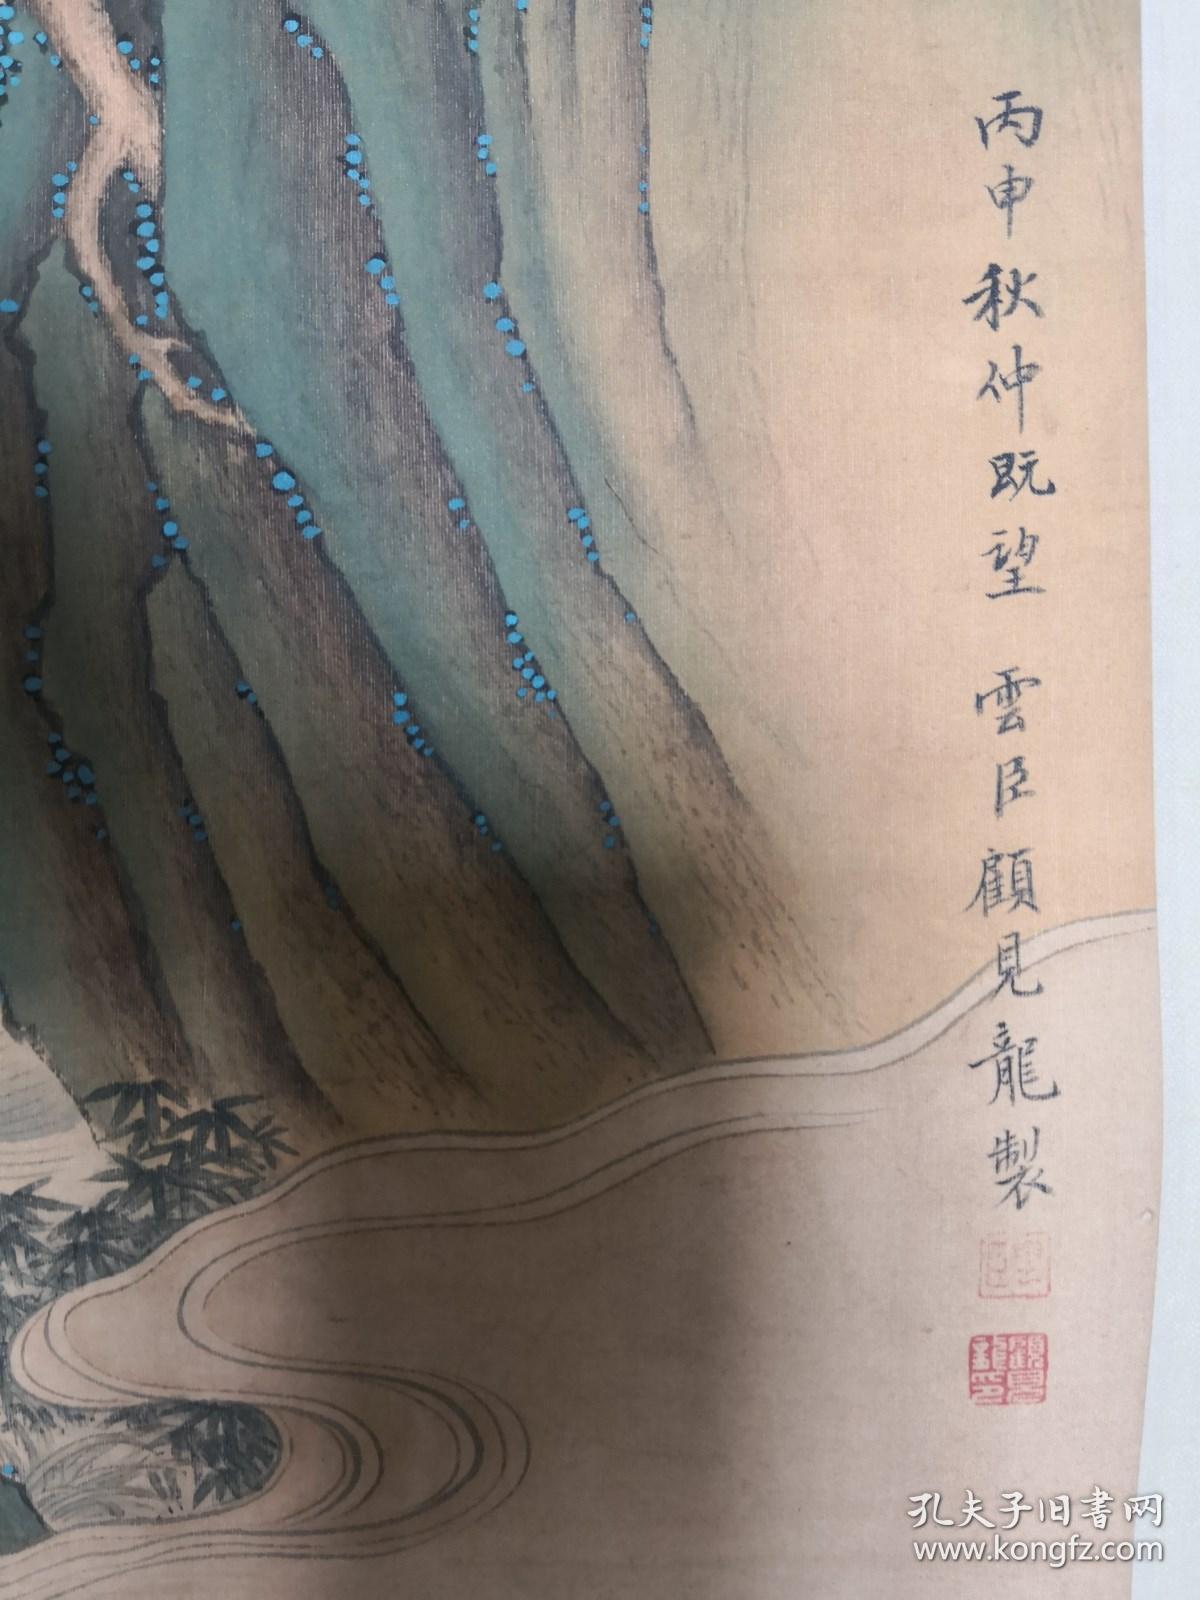 丙申秋仲既望 雲臣顧見龍製
雲臣
顧見龍印
孔夫子旧书网
www.kongfz.com